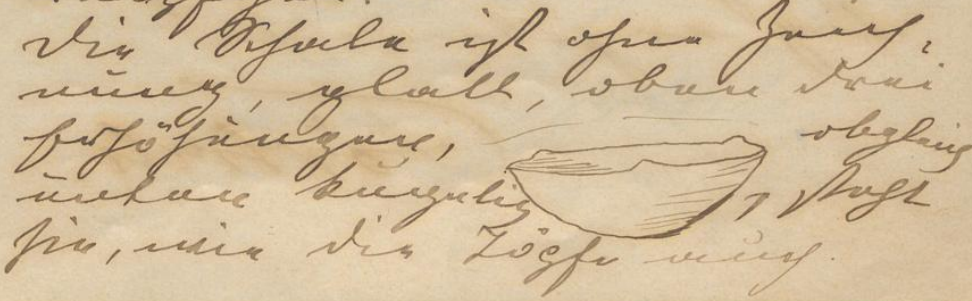 Die Schale ist ohne Zeich-
nung, glatt, oben drei
Erhöhungen, obgleich
unten kugelig, steht
sie, wie die Töpfe auch.